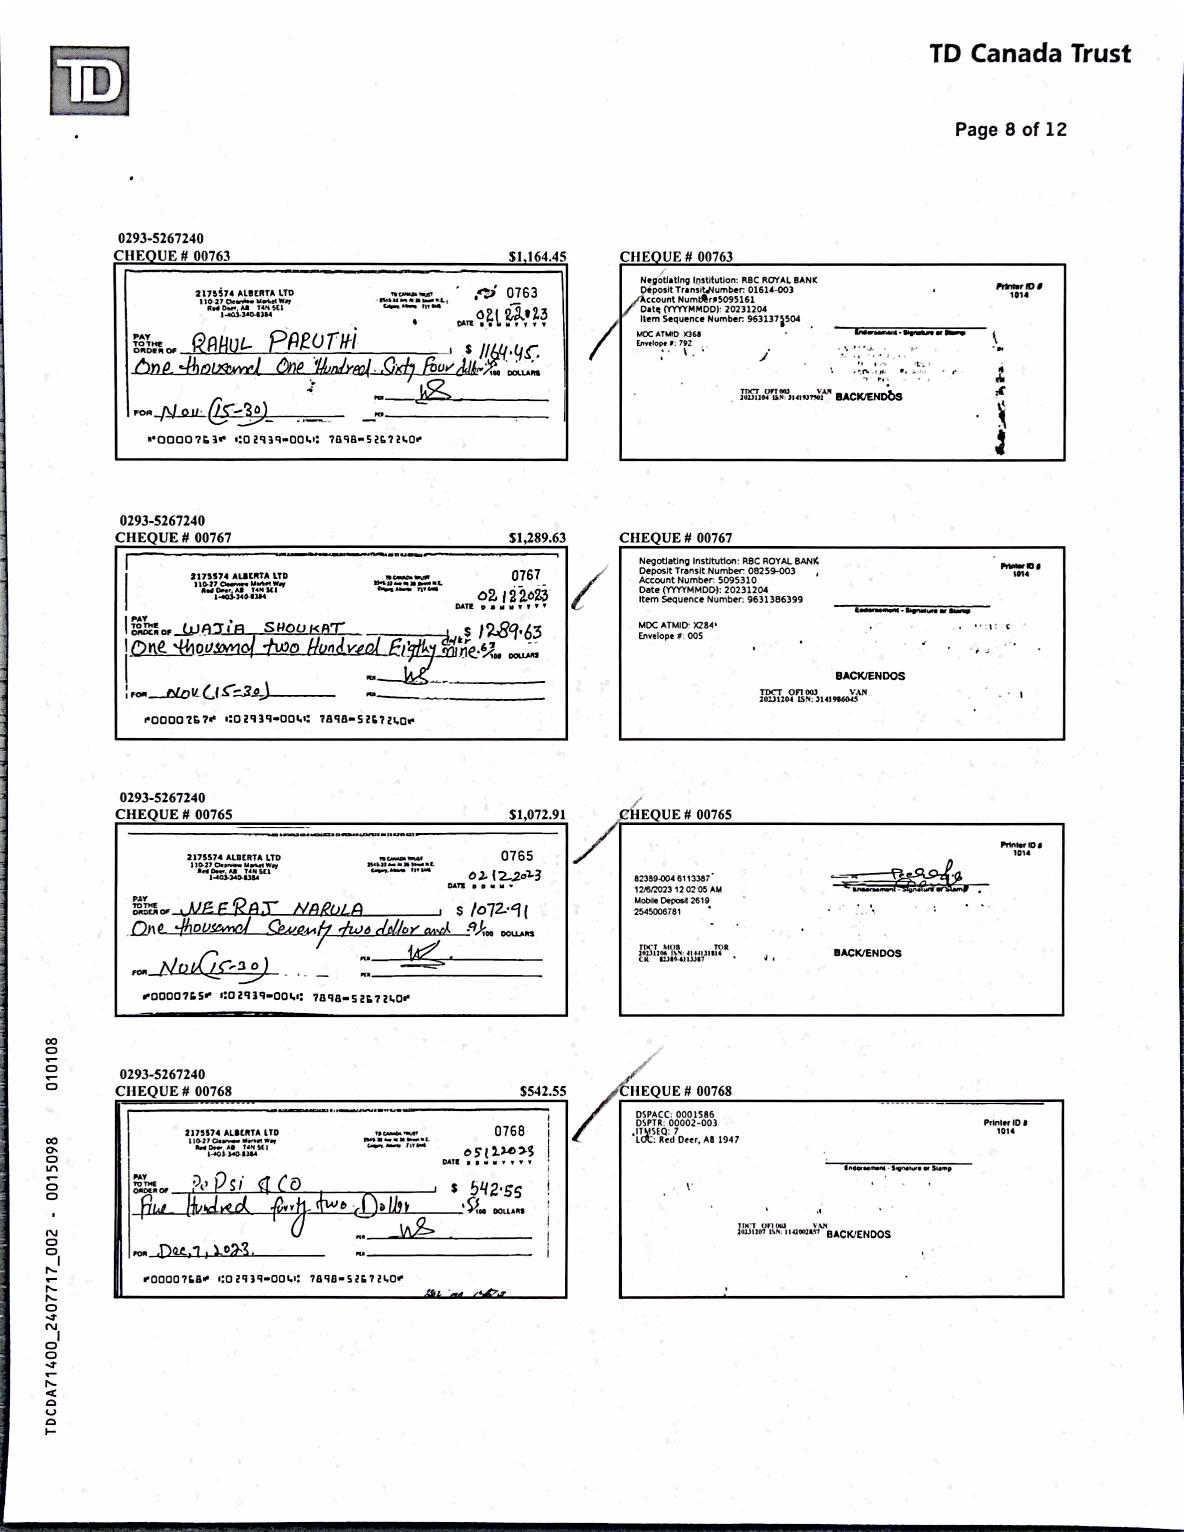 TD
TD Canada Trust
Page 8 of 12
0293-5267240
CHEQUE # 00763 $1,164.45
2175574 ALBERTA LTD
110-27 Clearview Market Way
Red Deer, AB T4N 5E1
1-403-340-8384
TD CANADA TRUST
0763
DATE 02122023
PAY
TO THE
ORDER OF RAHUL PARUTHI $ 1164.45
One thousand One Hundred Sixty Four dollar /100 DOLLARS
PER WS
FOR Nov (15-30) PER
⑈000763⑈ ⑆02939⑉004⑆ 7898⑉5267240⑈
CHEQUE # 00763
Negotiating Institution: RBC ROYAL BANK
Deposit Transit Number: 01614-003
Account Number: 5095161
Date (YYYYMMDD): 20231204
Item Sequence Number: 9631375504
MDC ATMID: X368
Envelope #: 792
Printer ID #
1014
Endorsement - Signature or Stamp
TDCT OFI 003 VAN
20231204 ISN: 3141937502 BACK/ENDOS
0293-5267240
CHEQUE # 00767 $1,289.63
2175574 ALBERTA LTD
110-27 Clearview Market Way
Red Deer, AB T4N 5E1
1-403-340-8384
TD CANADA TRUST
0767
DATE 02122023
PAY
TO THE
ORDER OF WAJIA SHOUKAT $ 1289.63
One thousand two Hundred Eigthy nine dollar 63/100 DOLLARS
PER WS
FOR Nov (15-30) PER
⑈0000767⑈ ⑆02939⑉004⑆ 7898⑉5267240⑈
CHEQUE # 00767
Negotiating Institution: RBC ROYAL BANK
Deposit Transit Number: 08259-003
Account Number: 5095310
Date (YYYYMMDD): 20231204
Item Sequence Number: 9631386399
MDC ATMID: X284
Envelope #: 005
Printer ID #
1014
Endorsement - Signature or Stamp
BACK/ENDOS
TDCT OFI 003 VAN
20231204 ISN: 3141986045
0293-5267240
CHEQUE # 00765 $1,072.91
2175574 ALBERTA LTD
110-27 Clearview Market Way
Red Deer, AB T4N 5E1
1-403-340-8384
TD CANADA TRUST
0765
DATE 02122023
PAY
TO THE
ORDER OF NEERAJ NARULA $ 1072.91
One thousand Seventy two dollar and 91/100 DOLLARS
PER
FOR Nov (15-30) PER
⑈0000765⑈ ⑆02939⑉004⑆ 7898⑉5267240⑈
CHEQUE # 00765
82389-004 6113387
12/6/2023 12 02 05 AM
Mobile Deposit 2619
2545006781
Printer ID #
1014
Endorsement - Signature or Stamp
TDCT MOB TOR
20231206 ISN: 4144131814
CR 82389-6113387
BACK/ENDOS
0293-5267240
CHEQUE # 00768 $542.55
2175574 ALBERTA LTD
110-27 Clearview Market Way
Red Deer, AB T4N 5E1
1-403-340-8384
TD CANADA TRUST
0768
DATE 05122023
PAY
TO THE
ORDER OF PePsi & CO $ 542.55
Five Hundred forty two Dollar .55/100 DOLLARS
PER WS
FOR Dec,7,2023. PER
⑈0000768⑈ ⑆02939⑉004⑆ 7898⑉5267240⑈
CHEQUE # 00768
DSPACC: 0001586
DSPTR: 00002-003
ITMSEQ: 7
LOC: Red Deer, AB 1947
Printer ID #
1014
Endorsement - Signature or Stamp
TDCT OFI 003 VAN
20231207 ISN: 1142002857 BACK/ENDOS
TDCDA71400_2407717_002 - 0015098 010108